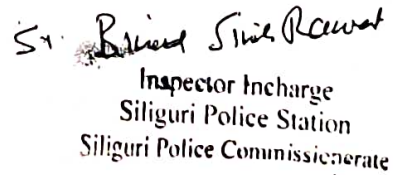 Sr. Singh Rawat
Inspector Incharge
Siliguri Police Station
Siliguri Police Commissionerate